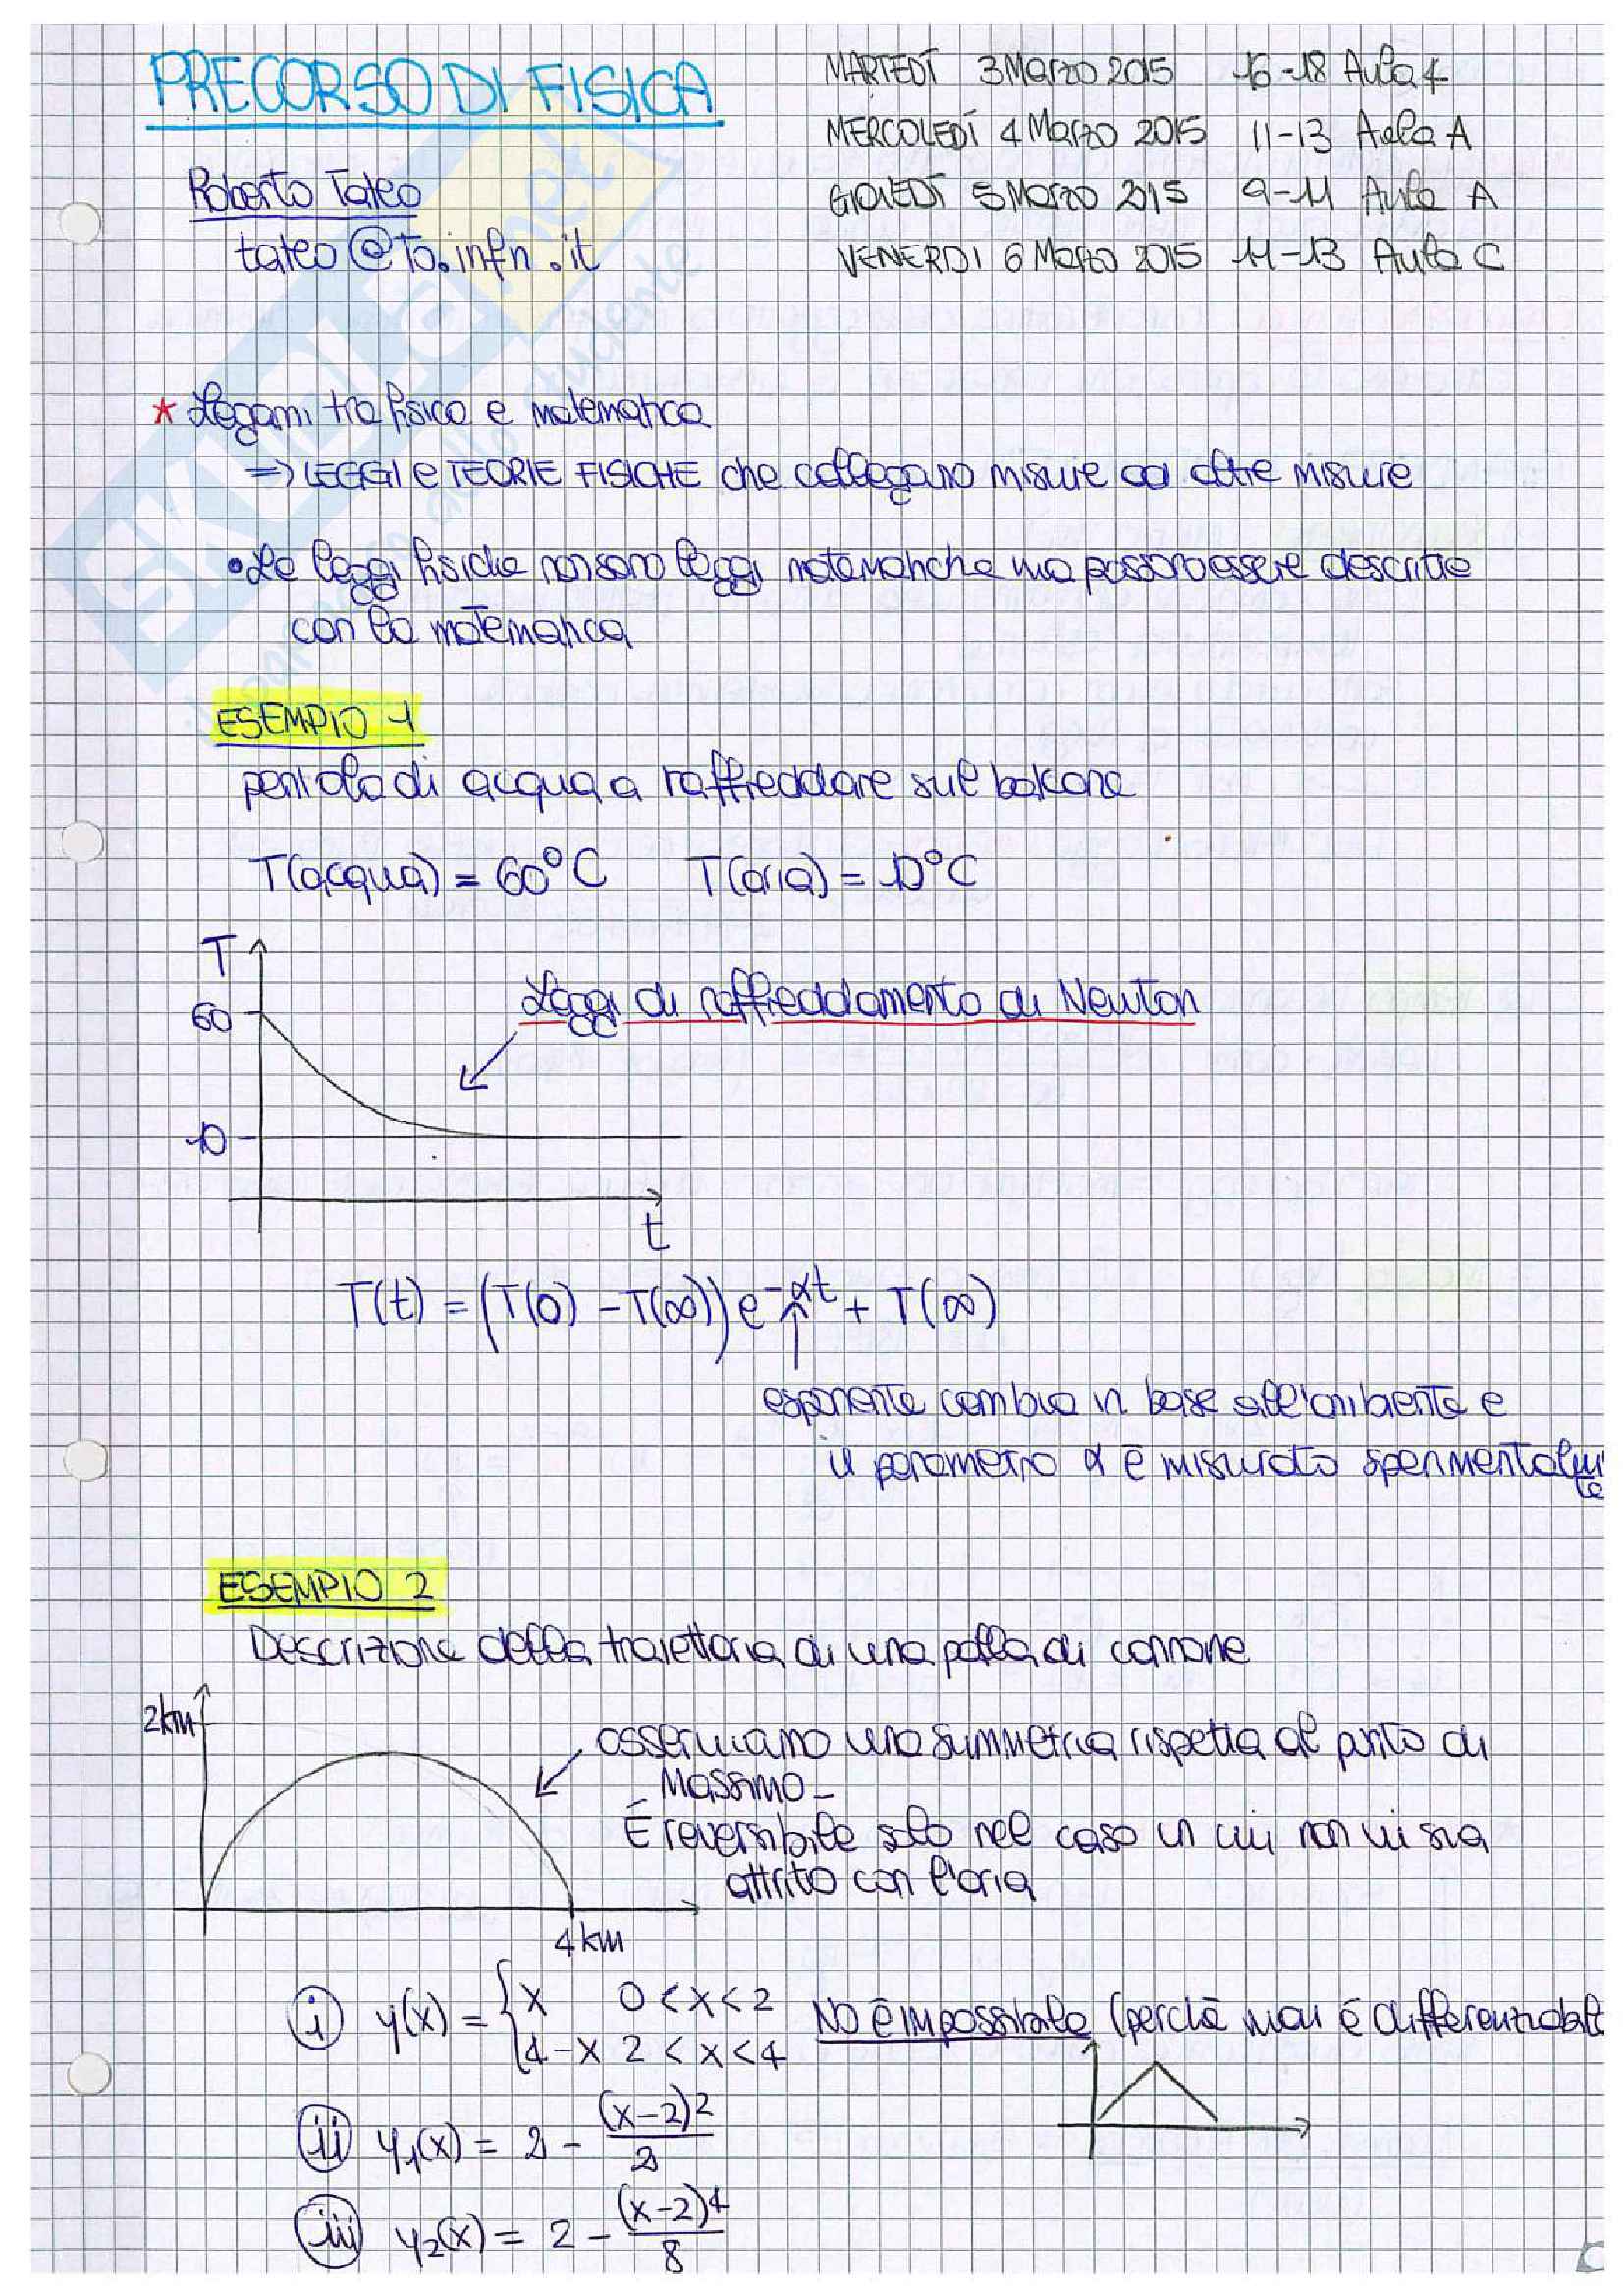 PRECORSO DI FISICA
MARTEDÌ 3 Marzo 2015 16-18 Aula
MERCOLEDÌ 4 Marzo 2015 11-13 Aula A
GIOVEDÌ 5 Marzo 2015 9-11 Aula A
VENERDI 6 Marzo 2015 11-13 Aula C
Roberto Tateo
tateo@to.infn.it
* Legami tra fisica e matematica
=> LEGGI e TEORIE FISICHE che collegano misure ad altre misure
• Le leggi fisiche non sono leggi matematiche ma possono essere descritte
con la matematica
ESEMPIO 1
pentola di acqua a raffreddare sul balcone
T(acqua) = 60°C T(aria) = 10°C
T
60
Leggi di raffreddamento di Newton
10
t
T(t) = (T(0) - T(∞)) e^-αt + T(∞)
esponente cambia in base all'ambiente e
il parametro α è misurato sperimentalmente
ESEMPIO 2
Descrizione della traiettoria di una palla di cannone
2km
osserviamo una simmetria rispetto al punto di
Massimo-
È reversibile solo nel caso in cui non vi sia
attrito con l'aria
4km
i y(x) = { x 0<x<2
4-x 2<x<4
No è impossibile (perché non è differenziabile
ii y₁(x) = 2 - (x-2)²/2
iii y₂(x) = 2 - (x-2)⁴/8
SKUOLA.net